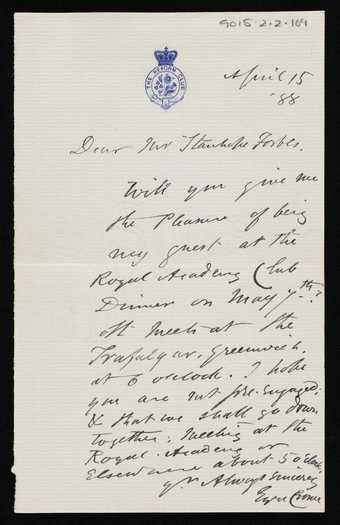 9015 2-2-109
THE REFORM CLUB
April 15
'88
Dear Mr Stanhope Forbes.
Will you give me
the Pleasure of being
my guest at the
Royal Academy Club
Dinner on May 7th?
It meets at the
Trafalgar, Greenwich,
at 6 o'clock. I hope
you are not pre-engaged;
& that we shall go down
together; meeting at the
Royal Academy or
Elsewhere about 5 o'clock.
yrs Always Sincerely
Eyre Crowe